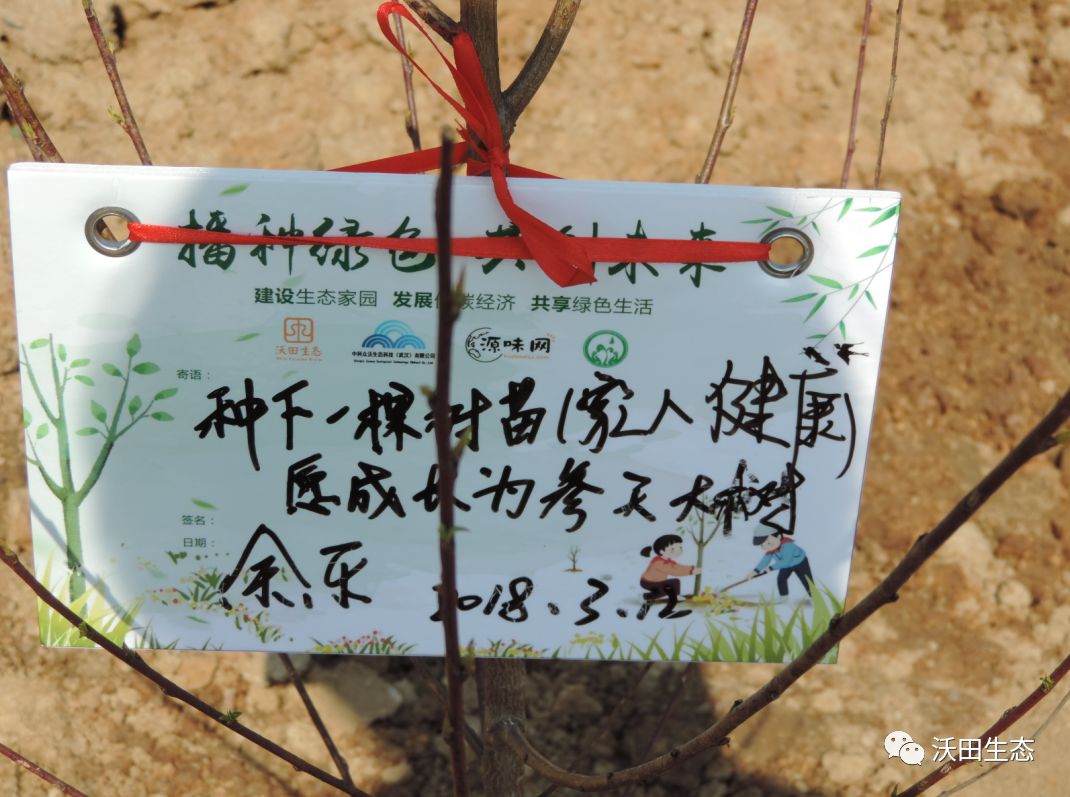 播种绿色 共创未来
建设生态家园 发展低碳经济 共享绿色生活
沃田生态
中科众沃生态科技（武汉）有限公司
源味网
寄语：
种下一棵树苗(家人健康)
愿成长为参天大树
签名：
日期：
余乐 2018.3.12
沃田生态